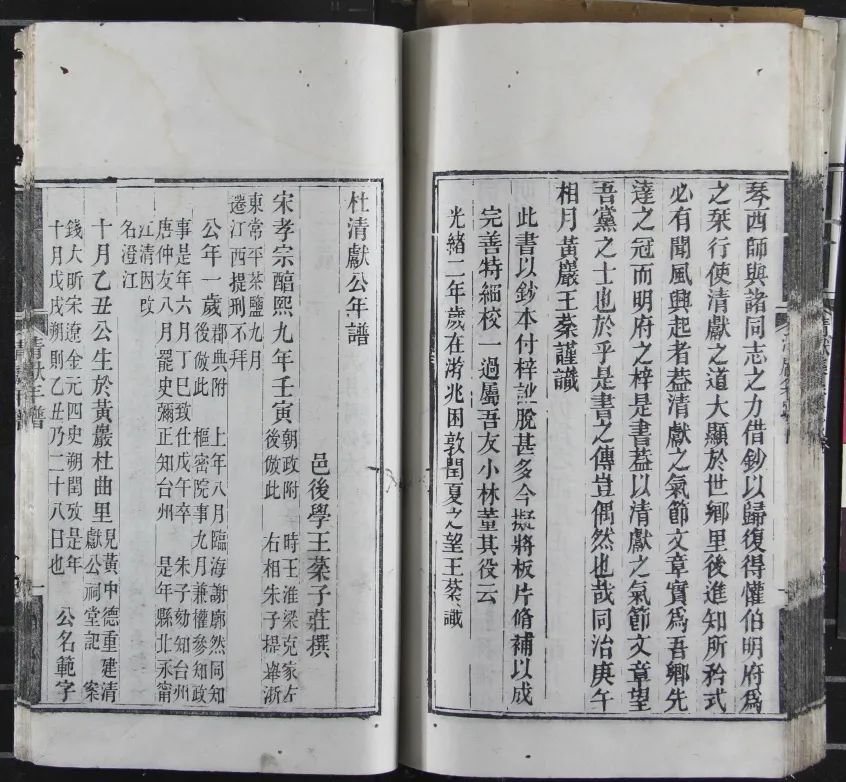 琴西師與諸同志之力借鈔以歸復得懽伯明府爲
之栞行使清獻之道大顯於世鄉里後進知所矜式
必有聞風興起者葢清獻之氣節文章實爲吾鄉先
達之冠而明府之梓是書葢以清獻之氣節文章望
吾黨之士也於乎是書之傳豈偶然也哉同治庚午
相月黃巖王棻謹識
此書以鈔本付梓譌脫甚多今擬將板片脩補以成
完善特細校一過屬吾友小林董其役云
光緒二年歲在游兆困敦閏夏之望王棻識
杜清獻公年譜
邑後學王棻子莊撰
宋孝宗醕熙九年壬寅
朝政附
後倣此
時王淮梁克家左
右相朱子提舉浙
東常平茶鹽九月
遷江西提刑不拜
公年一歲
郡典附
後倣此
上年八月臨海謝廓然同知
樞密院事九月兼權參知政
事是年六月丁巳致仕戊午卒
唐仲友八月罷史彌正知台州
朱子劾知台州
是年縣北永甯
江清因改
名澄江
十月乙丑公生於黃巖杜曲里
見黃中德重建清
獻公祠堂記
案
錢大昕宋遼金元四史朔閏攷是年
十月戊戌朔則乙丑乃二十八日也
公名範字
清獻年譜